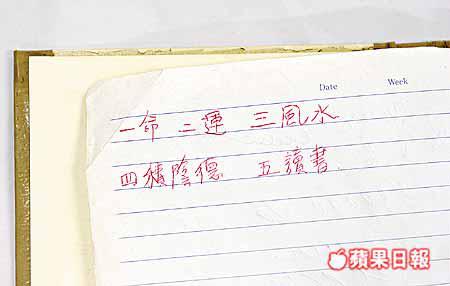 Date Week
一命 二運 三風水
四積陰德 五讀書
蘋果日報